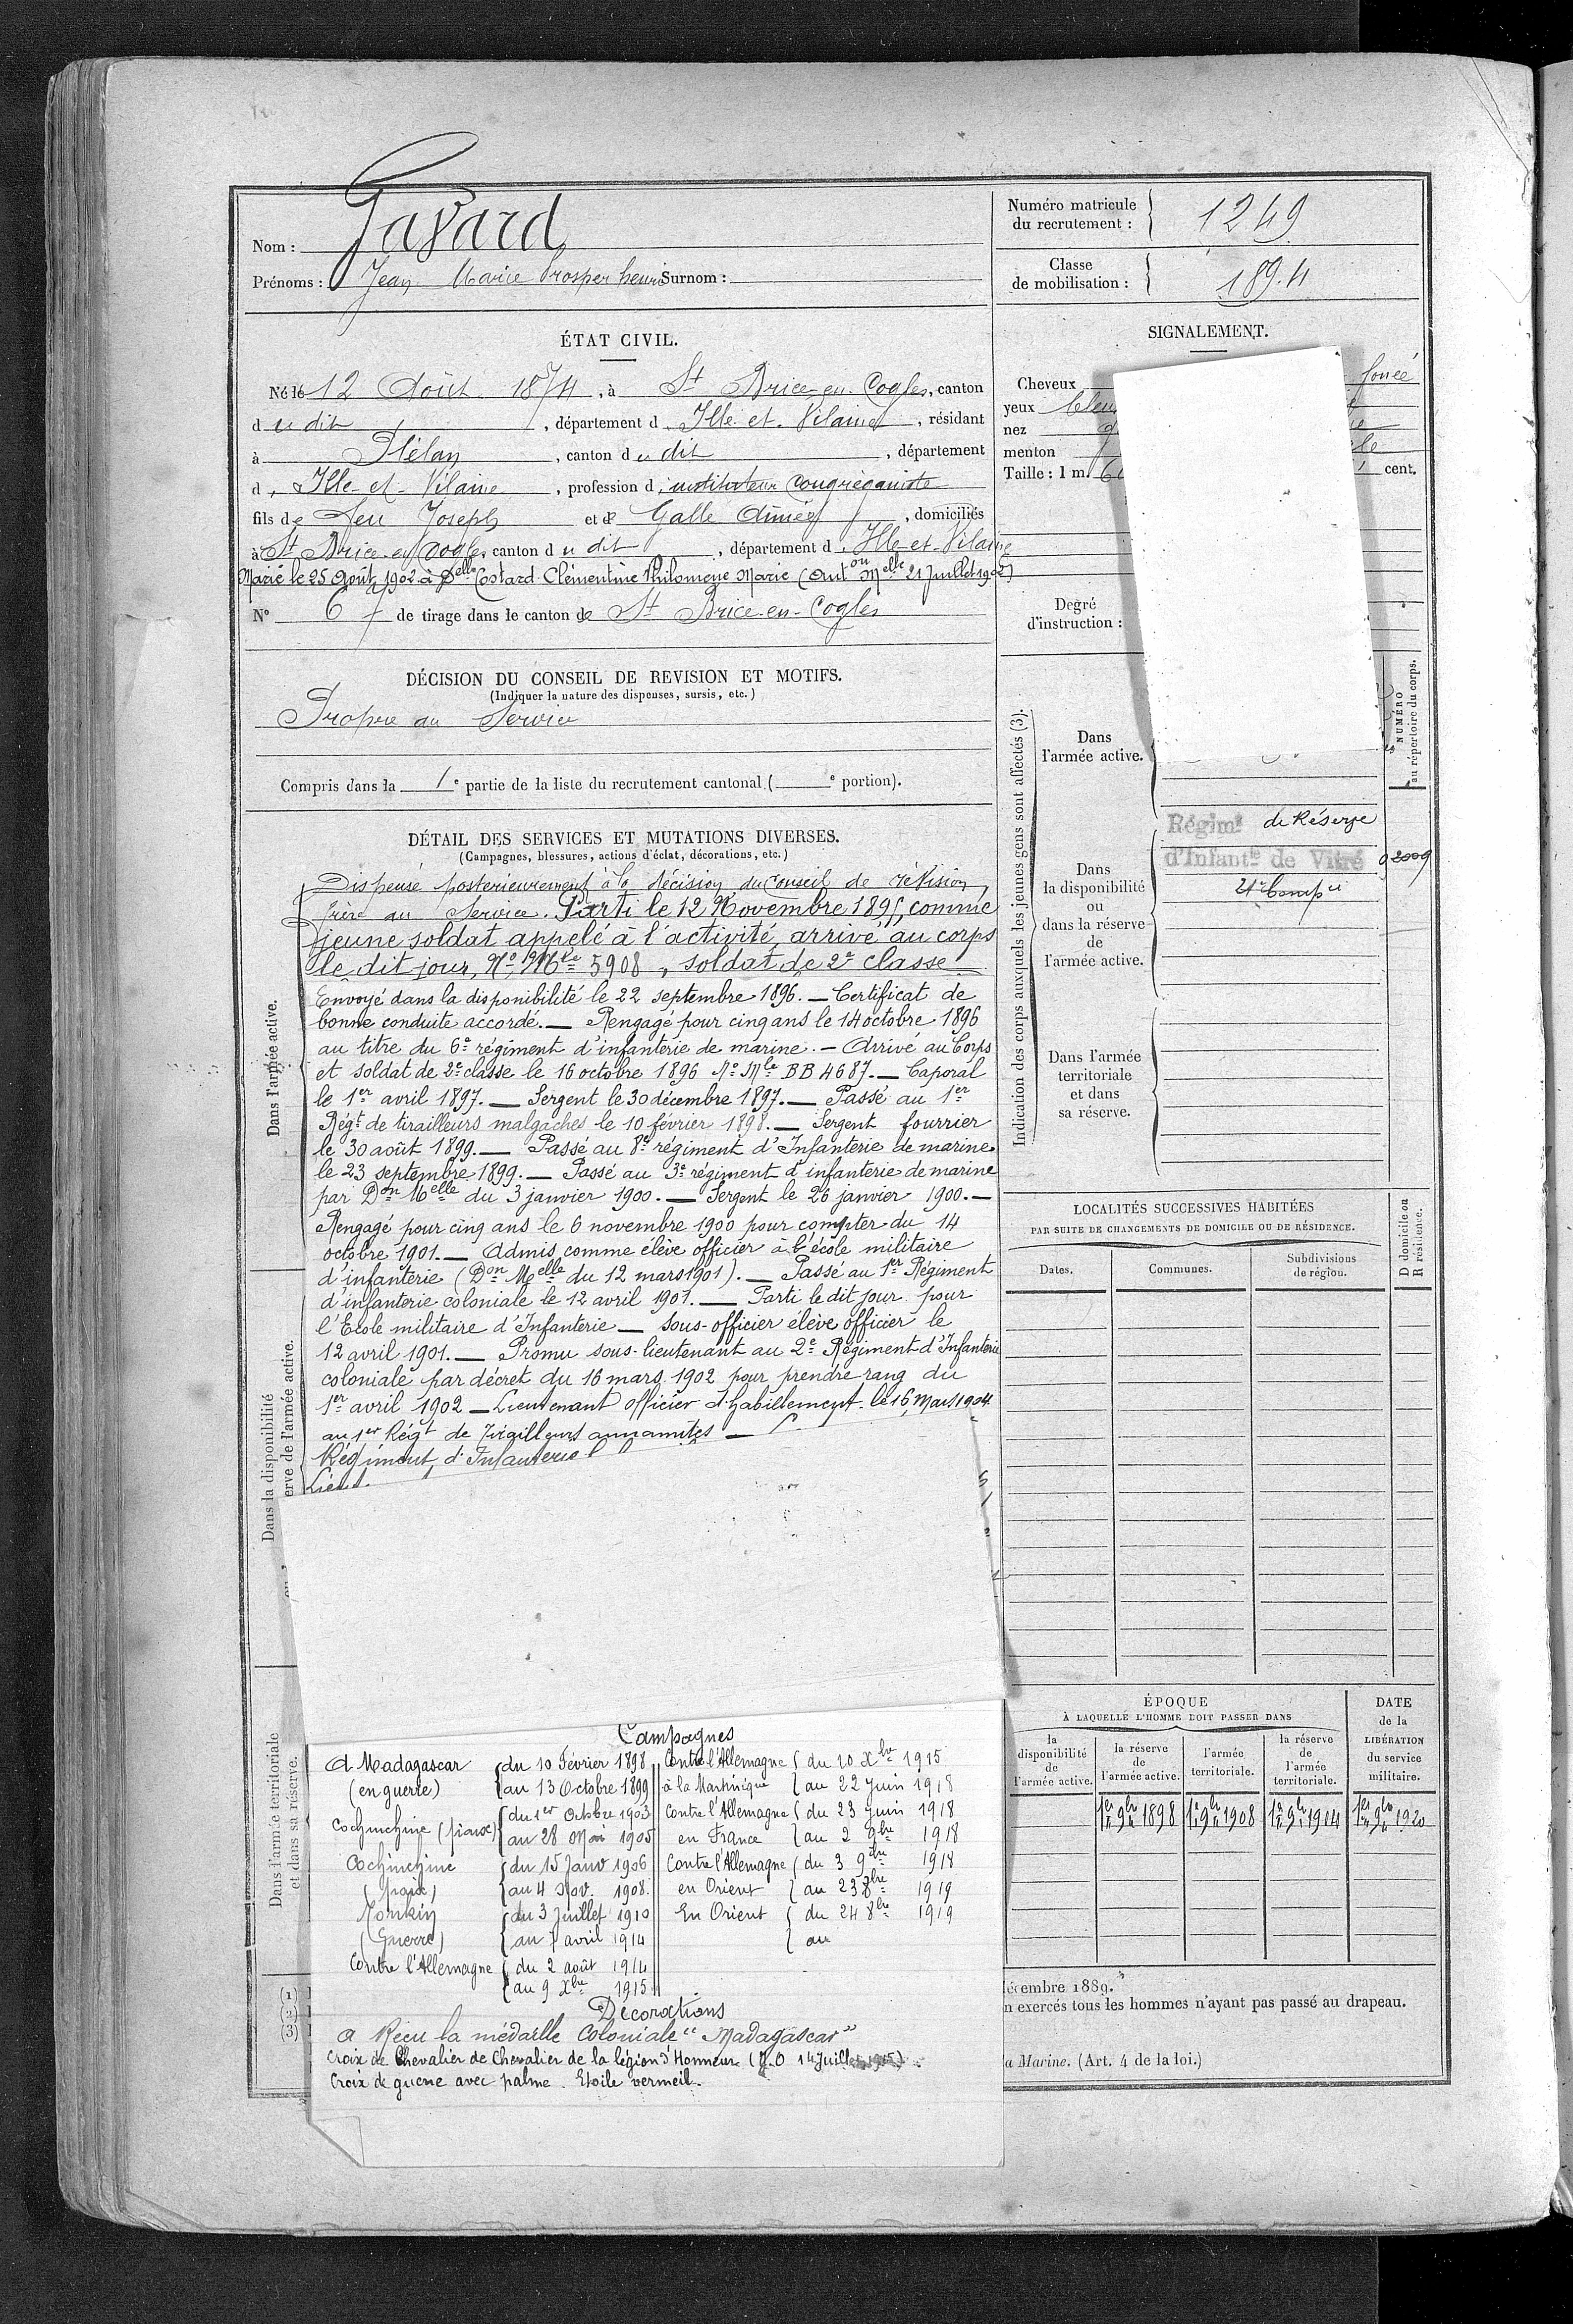 Nom : Gavard
Prénoms : Jean Marie Prosper henri Surnom :
Numéro matricule
du recrutement : 1249
Classe
de mobilisation : 1894
ÉTAT CIVIL.
Né le 12 Août 1874, à St Brice-en-Cogles, canton
d u dit, département d Ille-et-Vilaine, résidant
à Plélan, canton d u dit, département
d Ille-et-Vilaine, profession d instituteur Congréganiste
fils de feu Joseph et d Galle Aimée, domiciliés
à St Brice-en-Cogles, canton d u dit, département d Ille-et-Vilaine
Marié le 25 Août 1902 à Delle Costard Clémentine Philomène Marie (Auton Melle 21 Juillet 1902)
N° 67 de tirage dans le canton de St Brice-en-Cogles
DÉCISION DU CONSEIL DE REVISION ET MOTIFS.
(Indiquer la nature des dispenses, sursis, etc.)
Propre au Service
Compris dans la 1e partie de la liste du recrutement cantonal ( e portion).
DÉTAIL DES SERVICES ET MUTATIONS DIVERSES.
(Campagnes, blessures, actions d'éclat, décorations, etc.)
Dans l'armée active.
Dispensé posterieurement à la décision du Conseil de révision,
frère au Service. Parti le 12 Novembre 1895, comme
jeune soldat appelé à l'activité, arrivé au corps
le dit jour, No Mle 5908, soldat de 2e classe
Envoyé dans la disponibilité le 22 septembre 1896. — Certificat de
bonne conduite accordé. — Rengagé pour cinq ans le 14 octobre 1896
au titre du 6e régiment d'infanterie de marine. — Arrivé au Corps
et soldat de 2e classe le 16 octobre 1896 No Mle BB 4687. — Caporal
le 1er avril 1897. — Sergent le 30 décembre 1897. — Passé au 1er
Régt de tirailleurs malgaches le 10 février 1898. — Sergent fourrier
le 30 août 1899. — Passé au 8e régiment d'Infanterie de marine
le 23 septembre 1899. — Passé au 3e régiment d'infanterie de marine
par Don Melle du 3 janvier 1900. — Sergent le 26 janvier 1900. —
Rengagé pour cinq ans le 6 novembre 1900 pour compter du 14
octobre 1901. — Admis comme élève officier à l'école militaire
d'infanterie (Don Melle du 12 mars 1901). — Passé au 1er Régiment
d'infanterie coloniale le 12 avril 1901. — Parti le dit jour pour
l'Ecole militaire d'Infanterie — Sous-officier élève officier le
12 avril 1901. — Promu sous-lieutenant au 2e Régiment d'Infanterie
coloniale par décret du 16 mars 1902 pour prendre rang du
1er avril 1902 — Lieutenant officier d'habillement le 16 Mars 1904
au 1er Régt de Tirailleurs annamites —
Régiment d'Infanterie
Dans la disponibilité
erve de l'armée active.
Dans l'armée territoriale
et dans sa réserve.
(1)
(2)
(3)
Campagnes
A Madagascar du 10 Février 1898
(en guerre) au 13 Octobre 1899
Cochinchine (paix) du 1er Octobre 1903
au 28 Mai 1905
Cochinchine du 15 Janv 1906
(paix) au 4 Nov. 1908
Tonkin du 3 Juillet 1910
(Guerre) au 7 avril 1914
Contre l'Allemagne du 2 août 1914
au 9 Xbre 1915
Contre l'Allemagne du 10 Xbre 1915
à la Martinique au 22 Juin 1918
Contre l'Allemagne du 23 Juin 1918
en France au 2 9bre 1918
Contre l'Allemagne du 3 9bre 1918
en Orient au 23 8bre 1919
En Orient du 24 8bre 1919
au
Décorations
a Reçu la médaille Coloniale "Madagascar"
Croix de Chevalier de Chevalier de la légion d'Honneur (J.O 14 Juillet 1915)
Croix de guerre avec palme. Etoile vermeil.
SIGNALEMENT.
Cheveux foncé
yeux
nez
menton
Taille : 1 m. cent.
Degré
d'instruction :
Indication des corps auxquels les jeunes gens sont affectés (3).
NUMÉRO
au répertoire du corps.
Dans
l'armée active.
Dans
la disponibilité
ou
dans la réserve
de
l'armée active.
Régimt de Réserve
d'Infante de Vitré
Dans l'armée
territoriale
et dans
sa réserve.
LOCALITÉS SUCCESSIVES HABITÉES
PAR SUITE DE CHANGEMENTS DE DOMICILE OU DE RÉSIDENCE.
Dates.
Communes.
Subdivisions
de région.
D domicile ou
R résidence.
ÉPOQUE
À LAQUELLE L'HOMME DOIT PASSER DANS
la
disponibilité
de
l'armée active.
la réserve
de
l'armée active.
l'armée
territoriale.
la réserve
de
l'armée
territoriale.
DATE
de la
LIBÉRATION
du service
militaire.
1er 9bre 1898 1er 9bre 1908 1er 9bre 1914 1er 9bre 1920
décembre 1889.
n exercés tous les hommes n'ayant pas passé au drapeau.
a Marine. (Art. 4 de la loi.)